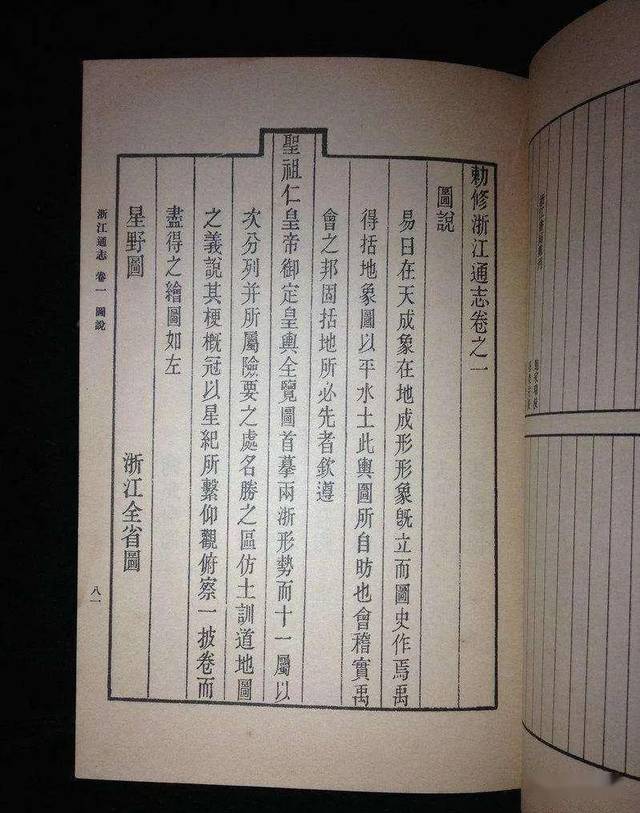 勅修浙江通志卷之一
圖說
易曰在天成象在地成形形象旣立而圖史作焉禹
得括地象圖以平水土此輿圖所自昉也會稽實禹
會之邦固括地所必先者欽遵
聖祖仁皇帝御定皇輿全覽圖首摹兩浙形勢而十一屬以
次分列并所屬險要之處名勝之區仿土訓道地圖
之義說其梗概冠以星紀所繫仰觀俯察一披卷而
盡得之繪圖如左
星野圖 浙江全省圖
浙江通志 卷一 圖說 八一